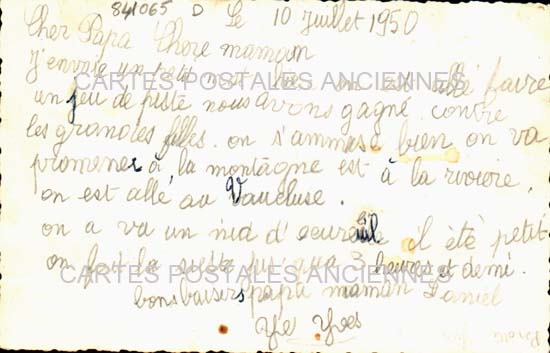 841065 D Le 10 Juillet 1950
Cher Papa Chere maman
J'envoie un petit mot hier on est allé faire
un jeu de piste nous avons gagné contre
les grandes filles. on s'ammuse bien on va
promener à la montagne est à la rivoire.
on est allé au Vaucluse.
on a vu un nid d'ecureuil il étè petit
on fait la sieste jus qua 3 heures et demi.
bons baisers papa maman Daniel
Ye Yves
CARTES POSTALES ANCIENNES
CARTES POSTALES ANCIENNES